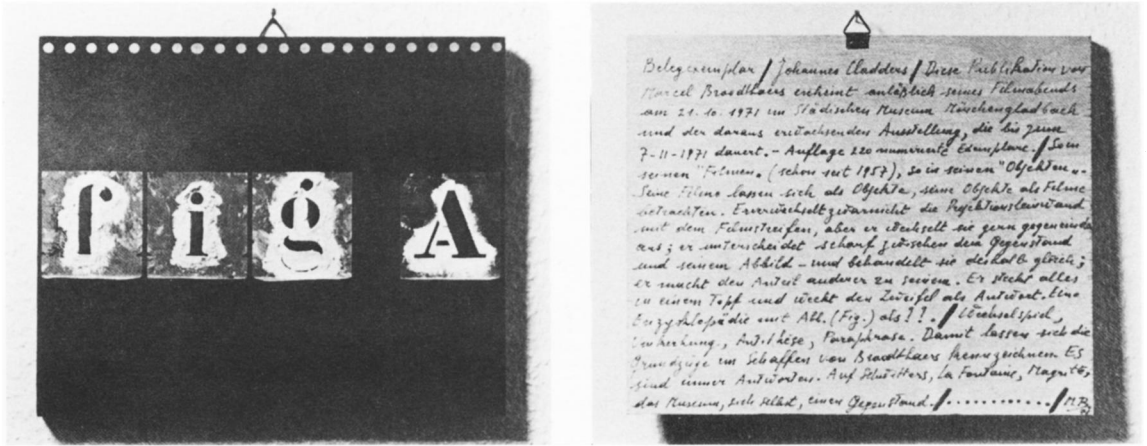 fig A
Belegexemplar / Johannes Cladders / Diese Publikation von
Marcel Broodthaers erscheint anläßlich seines Filmabends
am 21.10.1971 im Städischen Museum Mönchengladbach
und der daraus erwachsenden Ausstellung, die bis zum
7-11-1971 dauert. - Auflage 220 numerierte Exemplare. / So in
seinen "Filmen" (schon seit 1957), so in seinen "Objekten".
Seine Filme lassen sich als Objekte, seine Objekte als Filme
betrachten. Er verwechselt gewiß nicht die Projektionsleinwand
mit dem Filmstreifen, aber er wechselt sie gern gegeneinander
aus; er unterscheidet scharf zwischen dem Gegenstand
und seinem Abbild - und behandelt sie deshalb gleich;
er macht den Anteil anderer zu seinem. Er steckt alles
in einem Topf und weckt den Zweifel als Antwort. Eine
Enzyklopädie mit Abb. (Fig.) als ? ! . / Wechselspiel,
Umkehrung, Antithese, Paraphrase. Damit lassen sich die
Grundzüge im Schaffen von Broodthaers kennzeichnen. Es
sind immer Antworten. Auf Schwitters, La Fontaine, Magritte,
das Museum, sich selbst, einen Gegenstand. / ............ / M.B.